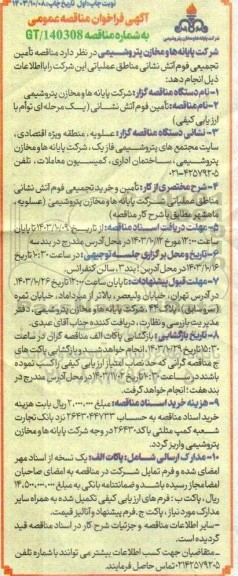 نوبت چاپ: اول تاریخ چاپ: ۱۴۰۳/۱۰/۰۸
آگهی فراخوان مناقصه عمومی
به شماره مناقصه GT/140308
شرکت پایانه ها و مخازن پتروشیمی در نظر دارد مناقصه تأمین
تجمیعی فوم آتش نشانی مناطق عملیاتی این شرکت را با اطلاعات
ذیل انجام دهد:
۱- نام دستگاه مناقصه گزار: شرکت پایانه ها و مخازن پتروشیمی
۲- نام مناقصه: تأمین فوم آتش نشانی (یک مرحله ای توأم با
ارزیابی کیفی)
۳- نشانی دستگاه مناقصه گزار: عسلویه، منطقه ویژه اقتصادی،
سایت مجتمع های پتروشیمی فاز یک، شرکت پایانه ها و مخازن
پتروشیمی، ساختمان اداری، کمیسیون معاملات، تلفن
۰۲۱-۴۲۵۷۹۲۰۵
۴- شرح مختصری از کار: تأمین و خرید تجمیعی فوم آتش نشانی
مناطق عملیاتی شرکت پایانه ها و مخازن پتروشیمی (عسلویه،
ماهشهر مطابق با شرح کار مناقصه)
۵- مهلت دریافت اسناد مناقصه: از تاریخ ۱۴۰۳/۱۰/۰۹ تا پایان
ساعت ۱۲:۰۰ مورخ ۱۴۰۳/۱۰/۱۳ در محل آدرس مندرج در بند سه
۶- تاریخ و محل برگزاری جلسه توجیهی: در ساعت ۱۰:۳۰ تاریخ
۱۴۰۳/۱۰/۱۶ در محل آدرس: بند ۳، سالن کنفرانس.
۷- مهلت قبول پیشنهادات: تا پایان ساعت ۱۲:۰۰ تاریخ ۱۴۰۳/۱۰/۲۶
در آدرس تهران، خیابان ولیعصر، بالاتر از میرداماد، خیابان ثمره
(سروسایی)، پلاک ۴۴، شرکت پایانه ها و مخازن پتروشیمی، دفتر
مدیریت بازرسی و نظارت، دریافت کننده جناب آقای عبدی.
۸- تاریخ بازگشایی: بازگشایی پاکات الف مناقصه گران در ساعت
۱۵:۳۰ تاریخ ۱۴۰۳/۱۰/۲۹ انجام خواهد شد و بازگشایی پاکت های
ج مناقصه گرانی که حد نصاب امتیاز ارزیابی کیفی را کسب نموده
باشند در ساعت ۱۰:۳۰ تاریخ ۱۴۰۳/۱۱/۰۲ در محل آدرس مندرج در
بند هفت انجام خواهد گرفت.
۹- هزینه خرید اسناد مناقصه: مبلغ ۲,۰۰۰,۰۰۰ ریال بابت هزینه
خرید اسناد مناقصه به حساب ۲۶۴۳۰۴۴۷۳۳ نزد بانک تجارت
شعبه کمپ مثلثی با کد ۲۶۴۳۰ در وجه شرکت پایانه ها و مخازن
پتروشیمی واریز گردد.
۱۰- مدارک ارسالی شامل: پاکات الف: یک نسخه از اسناد مهر
امضا شده و فرم تمایل شرکت در مناقصه به امضای صاحبان
امضا مجاز رسیده باشد و ضمانتنامه بانکی به مبلغ ۱۴,۵۰۰,۰۰۰,۰۰۰
ریال، پاکت ب: فرم های ارزیابی کیفی تکمیل شده به همراه سایر
مدارک مورد نیاز، پاکت ج: فرم پیشنهاد و آنالیز قیمت.
-سایر اطلاعات مناقصه و جزئیات شرح کار در اسناد مناقصه قید
گردیده است.
-متقاضیان جهت کسب اطلاعات بیشتر می توانند با شماره تلفن
۰۲۱۴۲۵۷۹۲۰۵ تماس حاصل فرمایند.